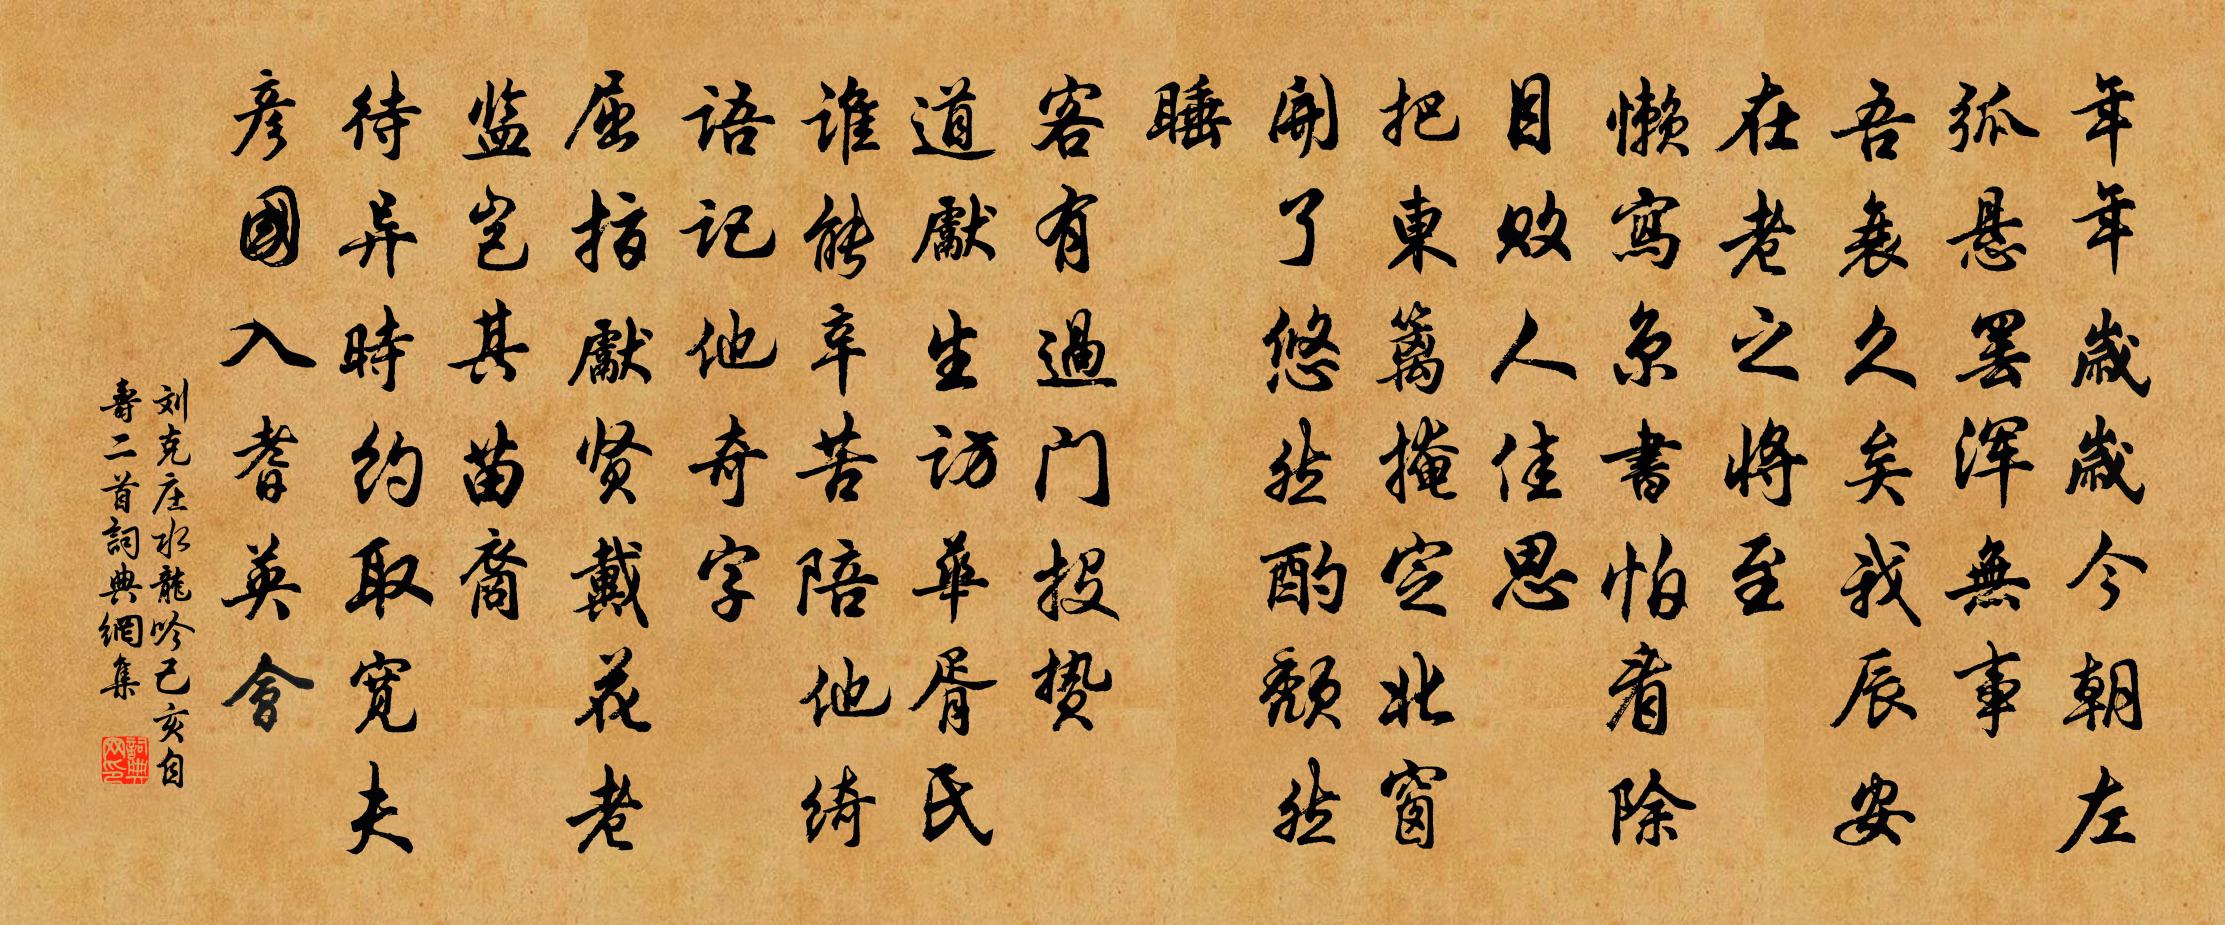 年年歲歲今朝左
弧悬罢浑無事
吾衰久矣我辰安
在老之將至
懒寫京書怕看除
目败人佳思
把東篱掩定北窗
開了悠然酌颓然
睡
客有過门投贽
道獻生訪華胥氏
誰能辛苦陪他绮
語記他奇字
屈指獻贤戴花老
监岂其苗裔
待异時约取宽夫
彦國入耆英會
刘克庄水龍吟己亥自
壽二首詞典網集
詞典网印